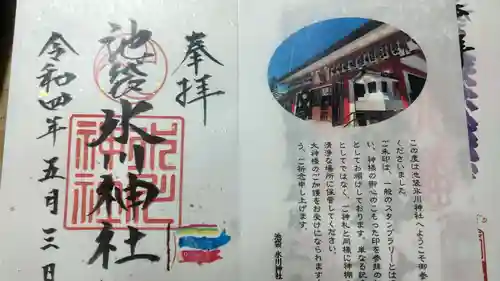 奉拝
池袋氷川神社
令和四年五月三日
この度は池袋氷川神社へようこそ御参
くださいました。
ご朱印は、一般のスタンプラリーとは
い、神様の御心のこもった印を参拝の
としてお頒けしております。単なる記
としてではなく、ご神札と同様に神棚
清浄な場所に保管してください。
大神様のご加護をお受けになられます
う、ご祈念申し上げます。
池袋 氷川神社